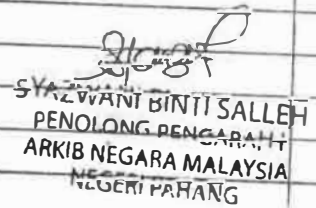 SYAZWANI BINTI SALLEH
PENOLONG PENGARAH
ARKIB NEGARA MALAYSIA
NEGERI PAHANG